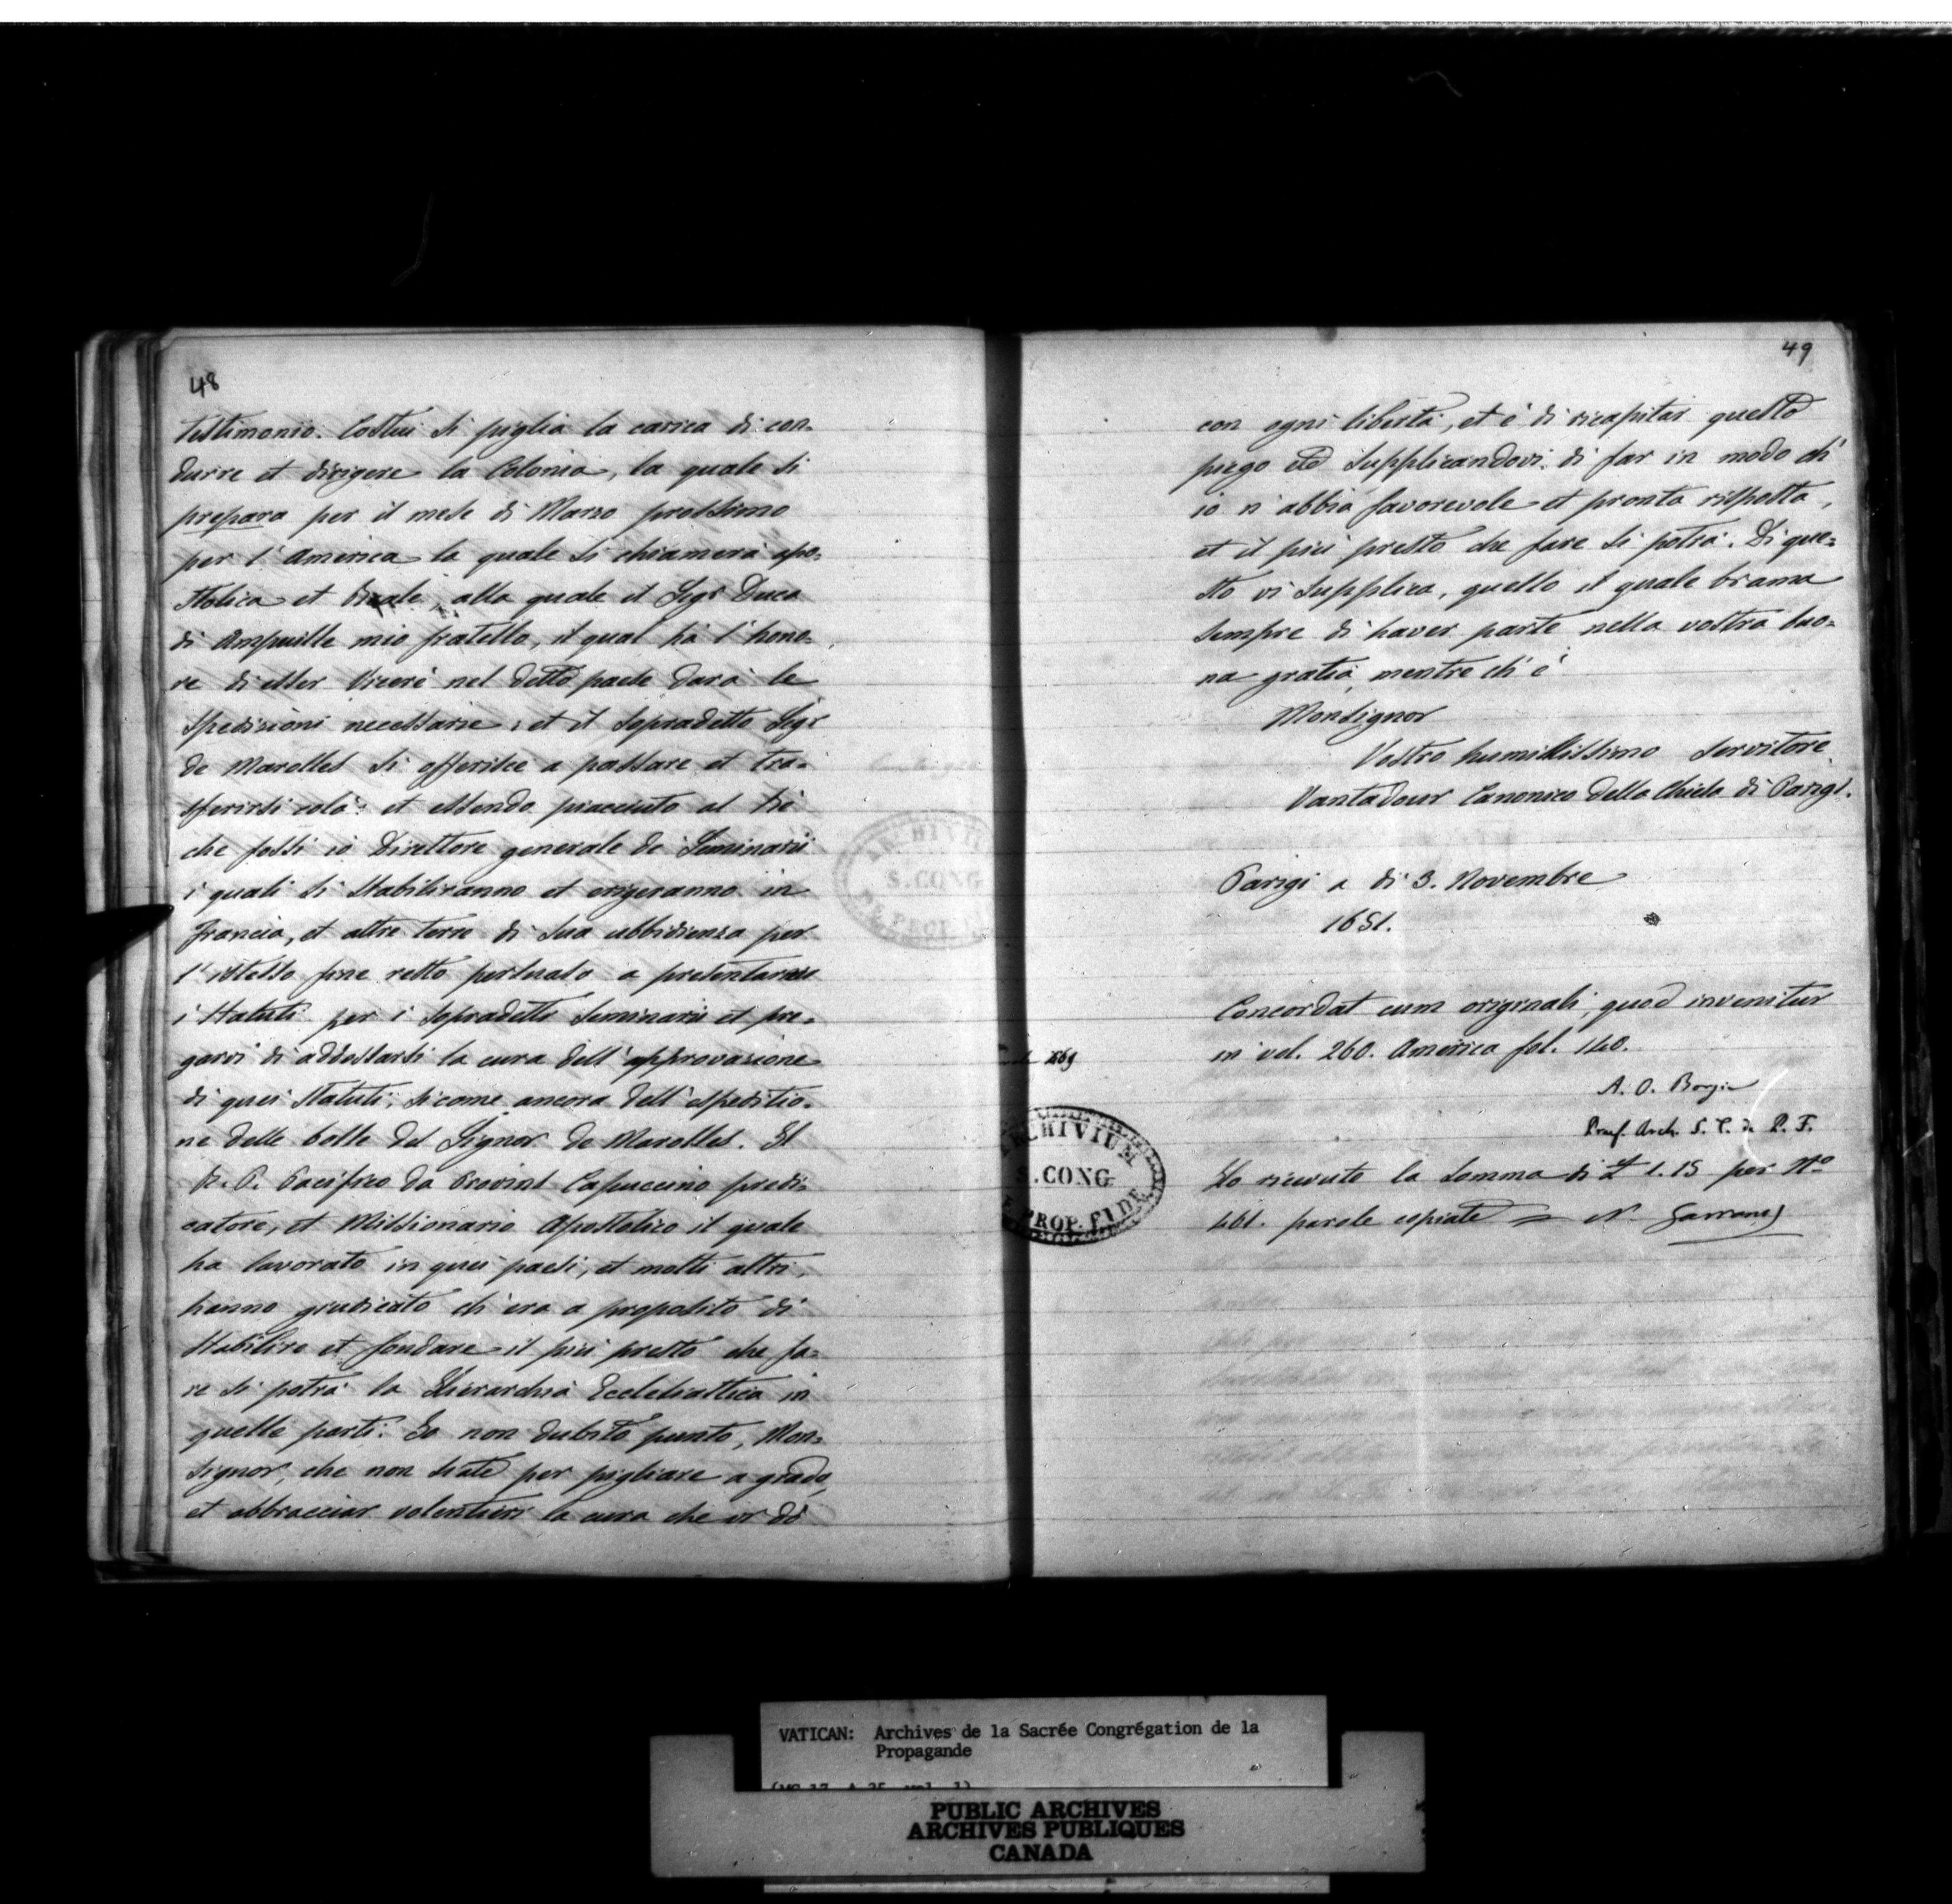 48
testimonio. Costui si piglia la carica di con-
durre et dirigere la Colonia, la quale si
prepara per il mese di Marzo prossimo
per l'America la quale si chiamerà apo-
stolica et Reale, alla quale il Sigr Duca
di Ampuille mio fratello, il qual hà l'hono-
re di esser Vicerè nel detto paese darà le
spedizioni necessarie; et il sopradetto Sigr
de Marolles si offerisce a passare et tra-
sferirsi colà: et essendo piacciuto al Rè
che fossi io Direttore generale de Seminarii
i quali si stabiliranno et erigeranno in
Francia, et altre terre di sua ubbidienza per
l'istesso fine resto persuaso a presentarvi
i statuti per i sopradetti Seminarii et pre-
garvi di addossarsi la cura dell'approvazione
di quei statuti, sicome ancora dell'espeditio-
ne delle bolle del Signor de Marolles. Il
R. P. Pacifico da Provins Capuccino predi-
catore, et Missionario Apostolico il quale
ha lavorato in quei paesi, et molti altri,
hanno giudicato ch'era a proposito di
stabilire et fondare il più presto che fa-
re si potrà la Hierarchia Ecclesiastica in
quelle parti. Io non dubito punto, Mon-
signor, che non siate per pigliare a grado,
et abbracciar volentieri la cura che vi dò
49
con ogni libertà, et è di ricapitar questo
piego etc supplicandovi di far in modo ch'
io n'abbia favorevole et pronta risposta,
et il più presto che fare si potrà. Di que-
sto vi supplica, quello il quale brama
sempre di haver parte nella vostra buo-
na gratia, mentre ch'è
Monsignor
Vostro humilissimo servitore
Vantadour Canonico della Chiesa di Parigi.
Parigi a di 3. Novembre
1651.
Concordat cum originali, quod invenitur
in vol. 260. America fol. 140.
A. O. Borgia
Praef. Arch. S. C. de P. F.
Ho ricevuto la somma di £ 1.15 per No
461. parole copiate = N.
ARCHIVIUM
S. CONG
PROP. FIDE
VATICAN: Archives de la Sacrée Congrégation de la
Propagande
(MG 17, A 25, vol. 1)
PUBLIC ARCHIVES
ARCHIVES PUBLIQUES
CANADA